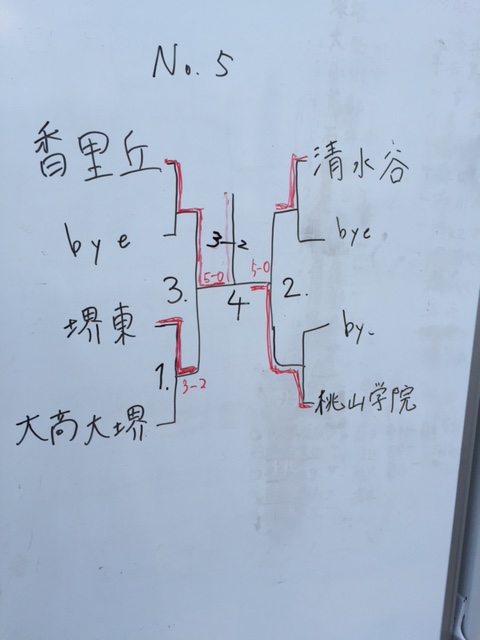 No. 5
香里丘
清水谷
bye
bye
3-2
5-0
5-0
3.
4
2.
堺東
by.
1.
3-2
大商大堺
桃山学院